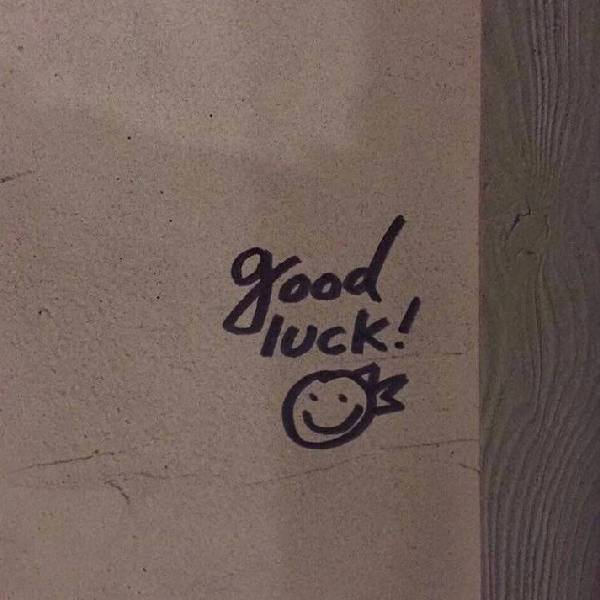 good
luck!